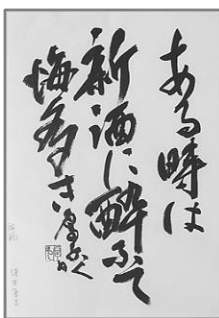 ある時は
新酒に酔ふて
悔多き